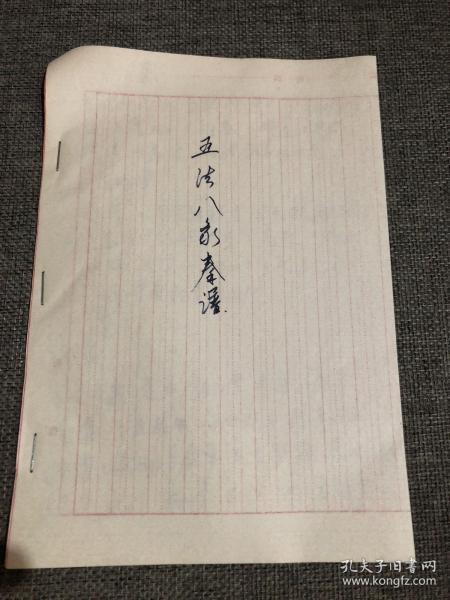 五法八象拳谱
孔夫子旧书网
www.kongfz.com